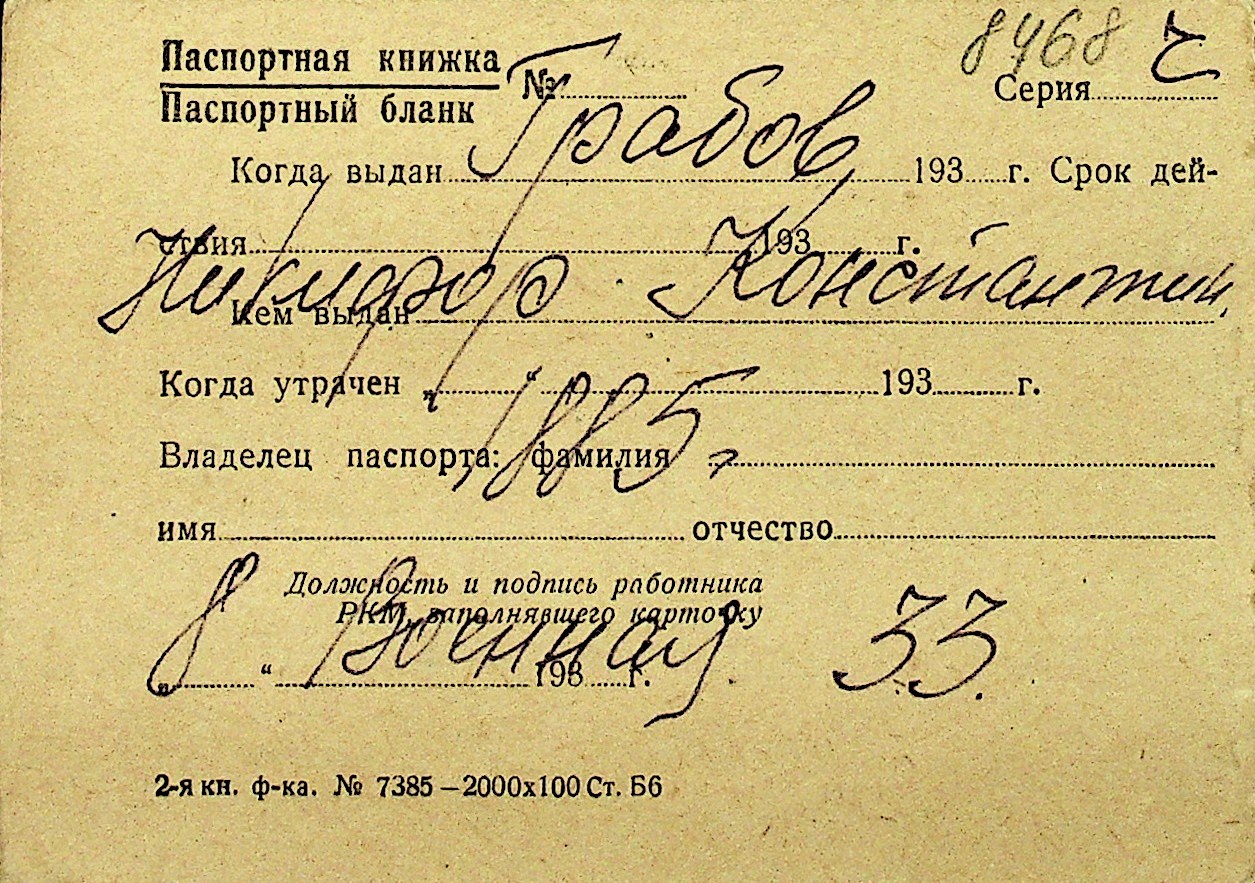 8468 г
Паспортная книжка
Паспортный бланк №
Серия
Грабов
Когда выдан 193 г. Срок дей-
ствия 193 г.
Никифор Константин,
Кем выдан
Когда утрачен „ “ 193 г.
1885 г
Владелец паспорта: фамилия
имя отчество
Должность и подпись работника
РКМ, заполнявшего карточку
8 Военная 33.
„ “ 193 г.
2-я кн. ф-ка. № 7385—2000х100 Ст. Б6